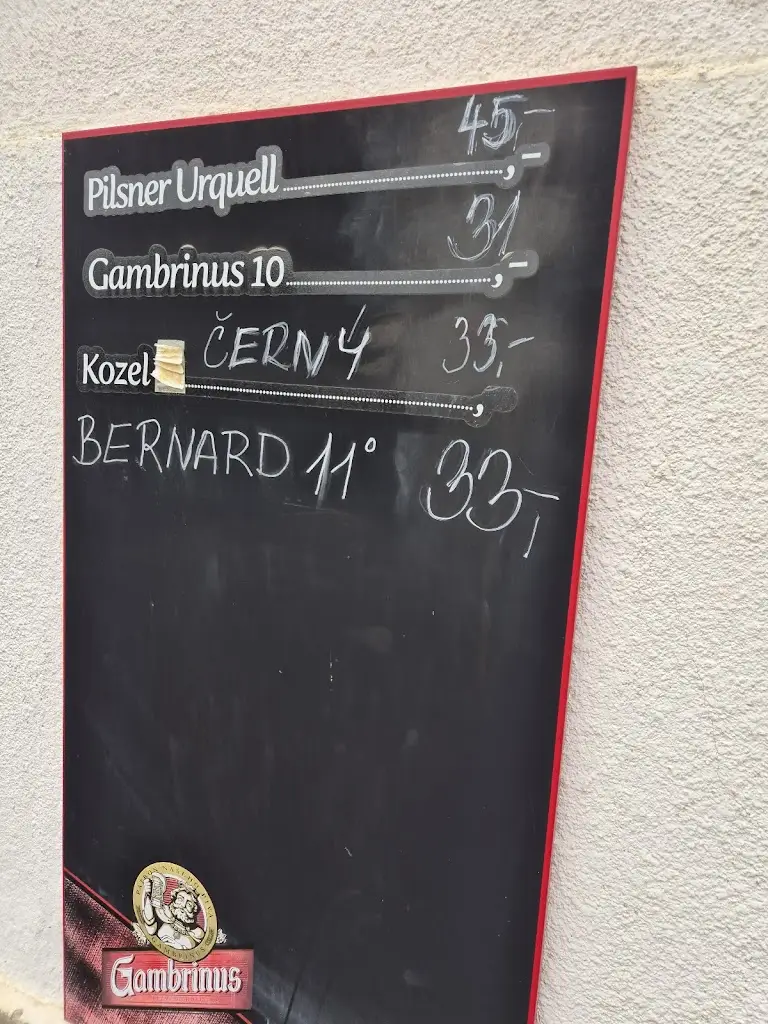 45,-
Pilsner Urquell ,-
31
Gambrinus 10 ,-
Kozel ČERNÝ 33,-
,
BERNARD 11° 33,-
GAMBRINUS
Gambrinus